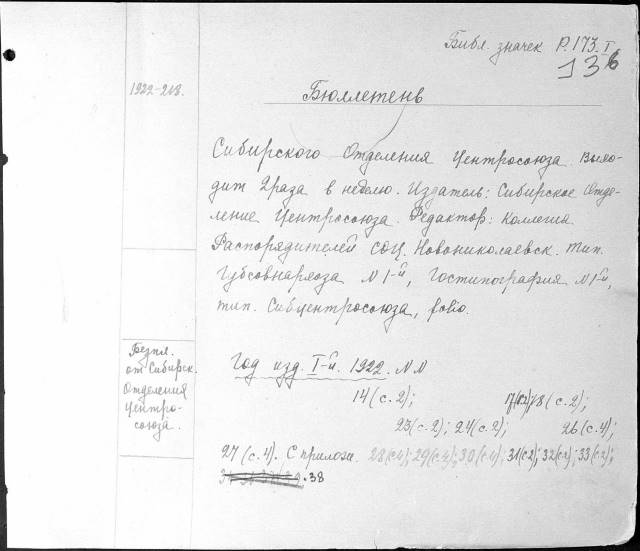 Библ. значек Р.173.I
136
1922-218.
Бюллетень
Сибирского Отделения Центросоюза. Выхо-
дит 2 рада в неделю. Издатель: Сибирское Отде-
ление Центросоюза. Редактор: Коллегия
Распорядителей СОЦ. Новониколаевск. Тип.
Губсовнархоза N 1-й, Гостипография N 1-й,
тип. Сибцентросоюза, folio.
Безпл.
от Сибирск.
Отделения
Центро-
союза.
Год изд. I-й. 1922. N N
14 (с. 2); 18 (с. 2);
23 (с. 2); 24 (с. 2); 26 (с. 4);
27 (с. 4). С прилож. 28 (с. 4); 29 (с. 4); 30 (с. 4); 31 (с. 2); 32 (с. 2); 33 (с. 2);
.38